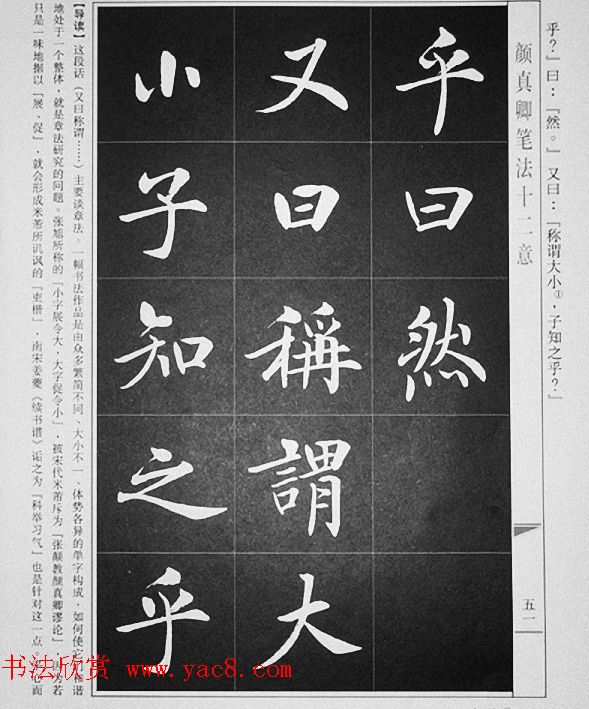 乎？』曰：『然。』又曰：『称谓大小①，子知之乎？』
颜真卿笔法十二意
五一
乎曰然
又曰稱謂大
小子知之乎
【导读】这段话（又曰称谓……）主要谈章法。一幅书法作品是由众多繁简不同、大小不一、体势各异的单字构成，如何使它和谐
地处于一个整体，就是章法研究的问题。张旭所称的『小字展令大，大字促令小』，被宋代米芾斥为『张颠教颜真卿谬论』。为若
只是一味地据以『展、促』，就会形成米芾所讥讽的『吏楷』，南宋姜夔《续书谱》诟之为『科举习气』也是针对这一点。而
书法欣赏 www.yac8.com